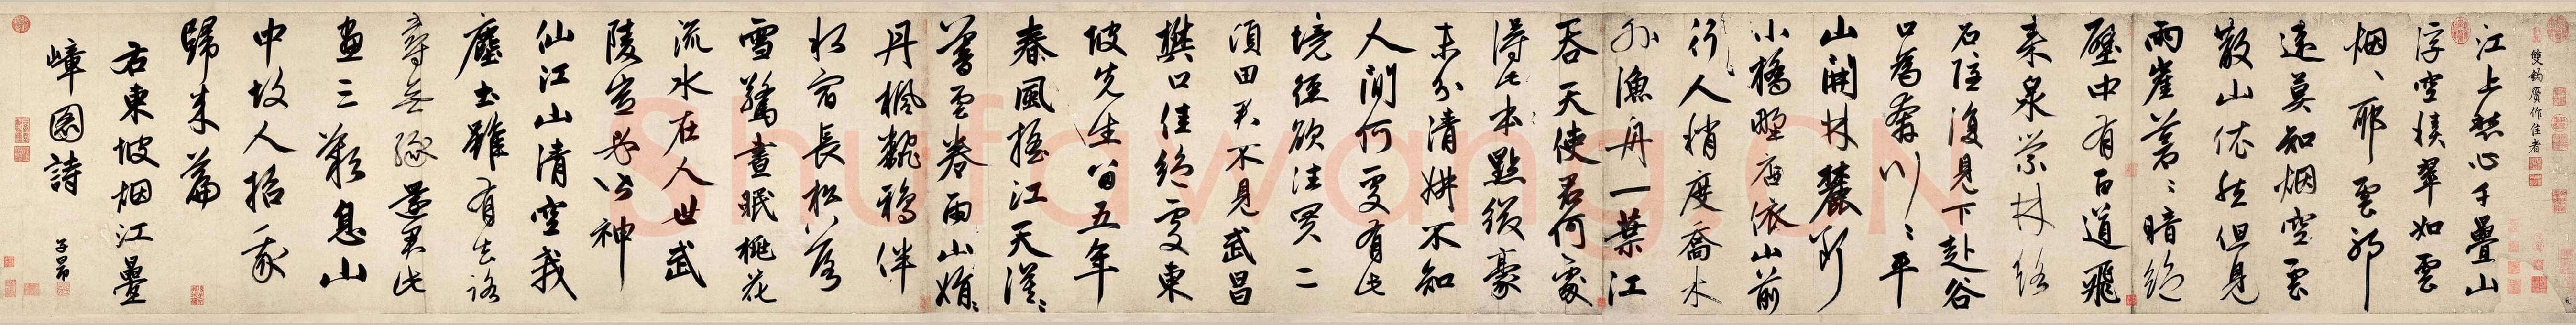 雙鈎贋作佳者
江上愁心千疊山
浮空積翠如雲
烟〻耶雲邪
遠莫知烟空雲
散山依然但見
兩崖蒼〻暗絕
壁中有百道飛
來泉縈林絡
石隱復見下赴谷
口為奔川〻平
山開林麓斷
小橋野店依山前
行人稍度喬木
外漁舟一葉江
吞天使君何處
得此本點綴豪
末分清妍不知
人間何處有此
境徑欲往買二
頃田君不見武昌
樊口佳絕處東
坡先生留五年
春風搖江天漠〻
暮雲卷雨山娟〻
丹楓飜鴉伴
水宿長松落
雪驚晝眠桃花
流水在人世武
陵豈必皆神
仙江山清空我
塵土雖有去路
尋無緣還君此
畫三歎息山
中故人招我
歸來篇
右東坡烟江疊
嶂圖詩
子昂
Shufawang.CN